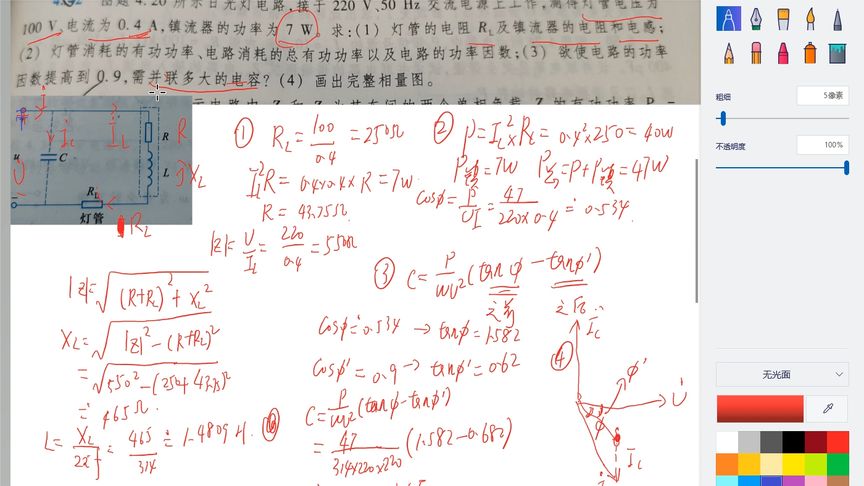 图题4.20所示日光灯电路,接于220 V、50 Hz交流电源上工作,测得灯管电压为
100 V,电流为0.4 A,镇流器的功率为7 W。求:(1)灯管的电阻RL及镇流器的电阻和电感;
(2)灯管消耗的有功功率、电路消耗的总有功功率以及电路的功率因数;(3)欲使电路的功率
因数提高到0.9,需并联多大的电容?(4)画出完整相量图。
i
Ic
IL
R
R
u
U
C
L
XL
RL
灯管
RL
① RL=100/0.4=250Ω
IL²R=0.4×0.4×R=7W
R=43.75Ω
|Z|=U/IL=220/0.4=550Ω
|Z|=√((R+RL)²+XL²)
XL=√(|Z|²-(R+RL)²)
=√(550²-(250+43.75)²)
≐465Ω
L=XL/2πf=465/314≐1.4809H.
② P=IL²×RL=0.4²×250=40W
P镇=7W P总=P+P镇=47W
cosφ=P/UI=47/220×0.4≐0.534
③ C=P/ωU²(tanφ-tanφ')
之前 之后
cosφ=0.534→tanφ=1.582
cosφ'=0.9→tanφ'=0.62
C=P/ωU²(tanφ-tanφ')
=47/314×220×220(1.582-0.682)
④
Ic
φ'
U
φ
IL
粗细
5像素
不透明度
100%
无光面